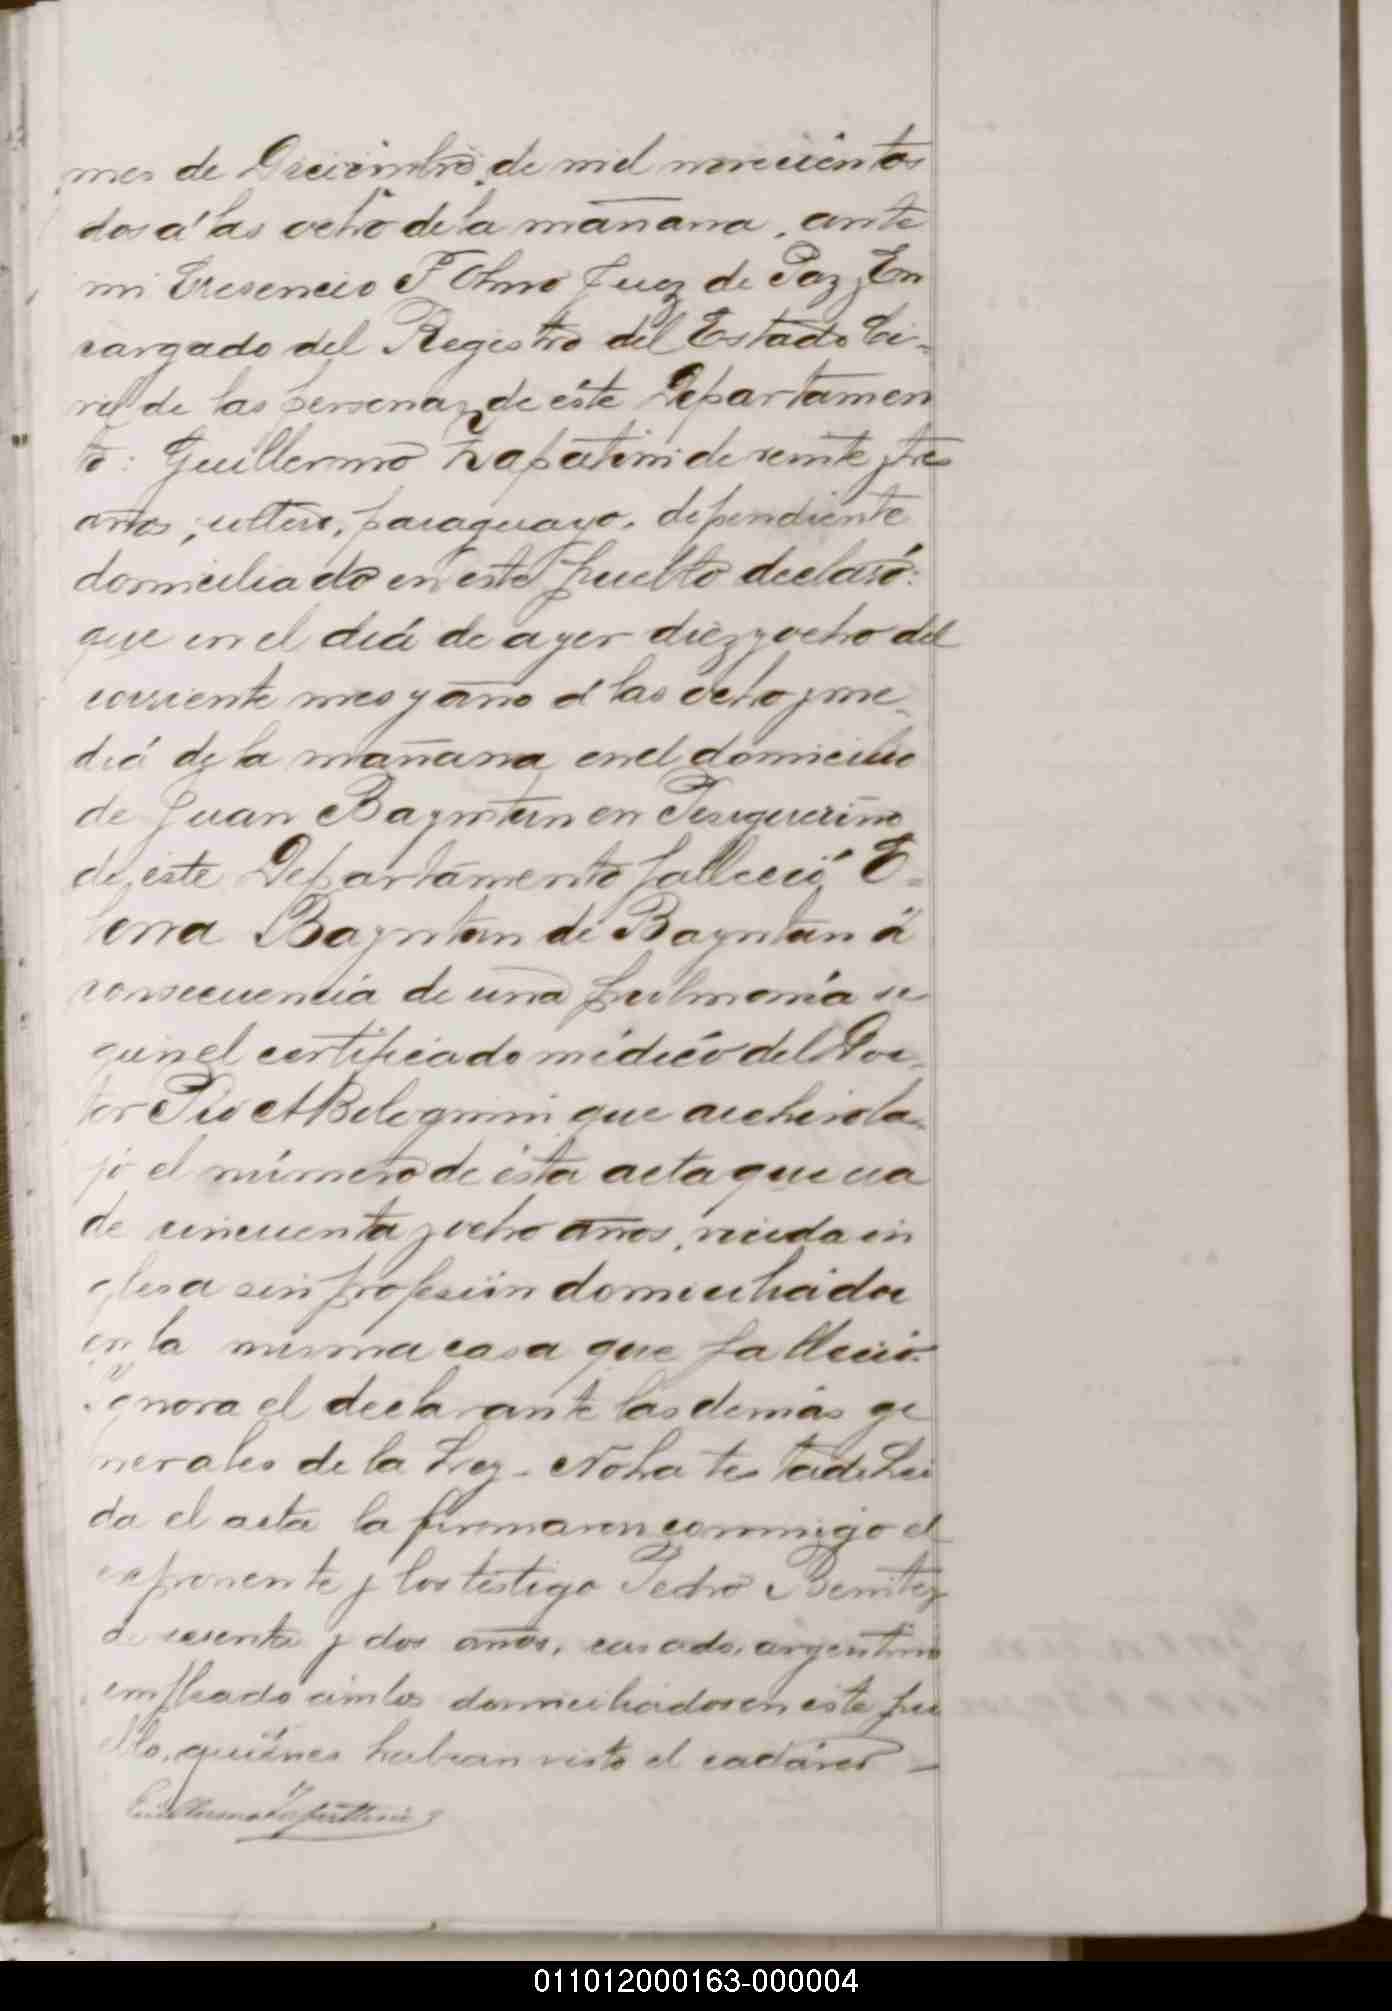 mes de Diciembre de mil novecientos
dos á las ocho de la mañana, ante
mi Cresencio F Olmo Juez de Paz y En
cargado del Registro del Estado Ci-
vil de las personas de éste Departamen
to: Guillermo Zapatini de veinte y tres
años, soltero, paraguayo, dependiente
domiciliado en este pueblo declaró:
que en el diá de ayer diez y ocho del
corriente mes y año á las ocho y me-
diá de la mañana en el domicilio
de Juan Bayntun en
de este Departamento falleció E-
lena Bayntun de Bayntun á
consecuencia de una pulmonía se
gun el certificado médico del Doc-
tor Pio A Bolognini que archivo ba-
jo el número de ésta acta que era
de cincuenta y ocho años, viuda in
glesa sin profesión domiciliada
en la misma casa que falleció.
Ygnora el declarante las demás ge
nerales de la Ley. No ha testado. Lei
da el acta la firmaron conmigo el
exponente y los testigo Pedro Benitez
de sesenta y dos años, casado, argentino
empleado ambos domiciliados en este pue
blo, quiénes habian visto el cadáver —
Guillermo Zapattini
011012000163-000004